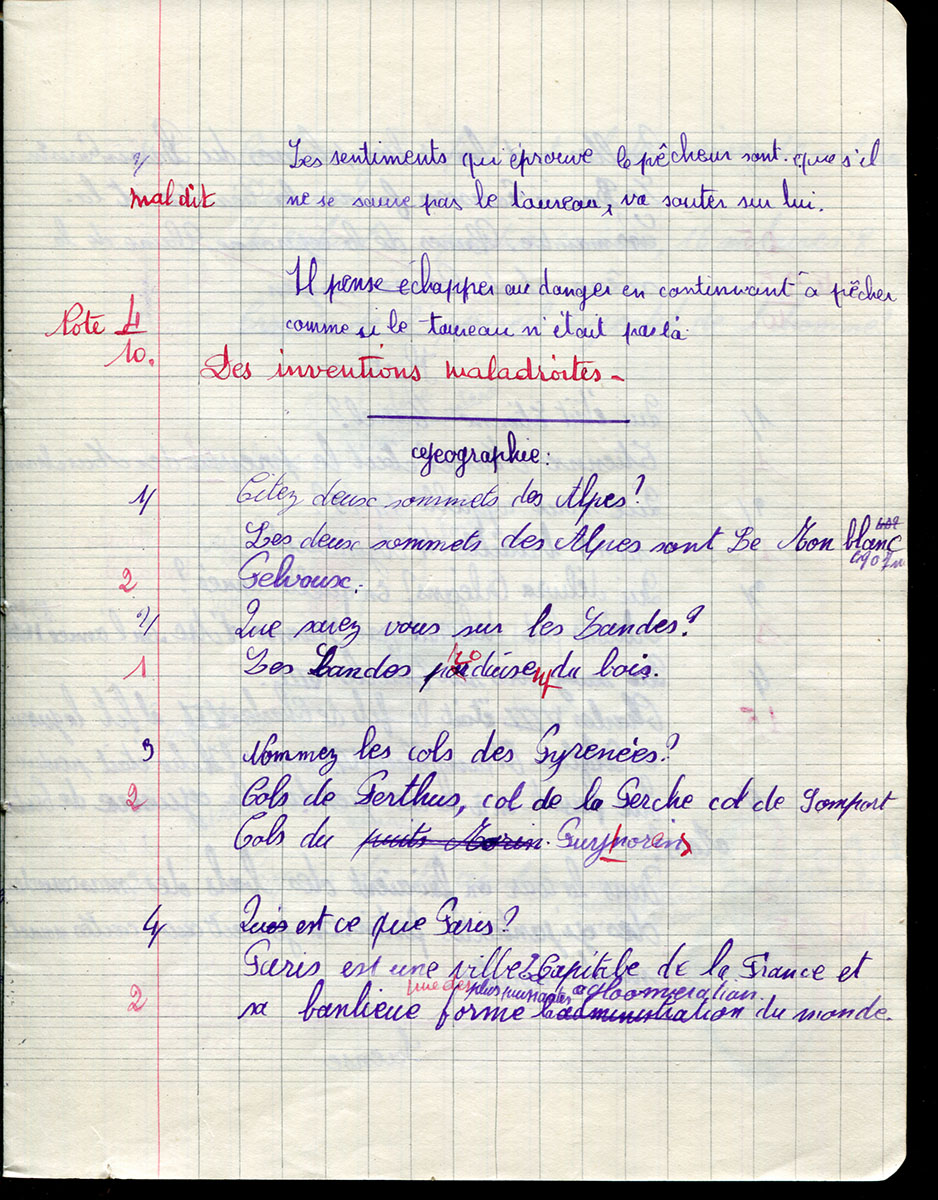 2/ Les sentiments qu'éprouve le pêcheur sont que s'il
mal dit ne se sauve pas le taureau, va sauter sur lui.
Il pense échapper au danger en continuant à pêcher
Note 4/10. comme si le taureau n'était pas là.
Des inventions maladroites -
Geographie:
1/ Citez deux sommets des Alpes?
Les deux sommets des Alpes sont Le Mon blanc
4907m
2 Pelvoux.
2/ Que savez vous sur les Landes?
1 Les Landes produisent du bois.
3 Nommez les cols des Pyrenées?
2 Cols de Perthus, col de la Perche col de Somport
Cols du puits Morin. Puymorens
4/ Qu'est ce que Paris?
Paris est une ville Capitale de la France et
une des plus puissantes agloomeration
2 sa banlieue forme administration du monde.